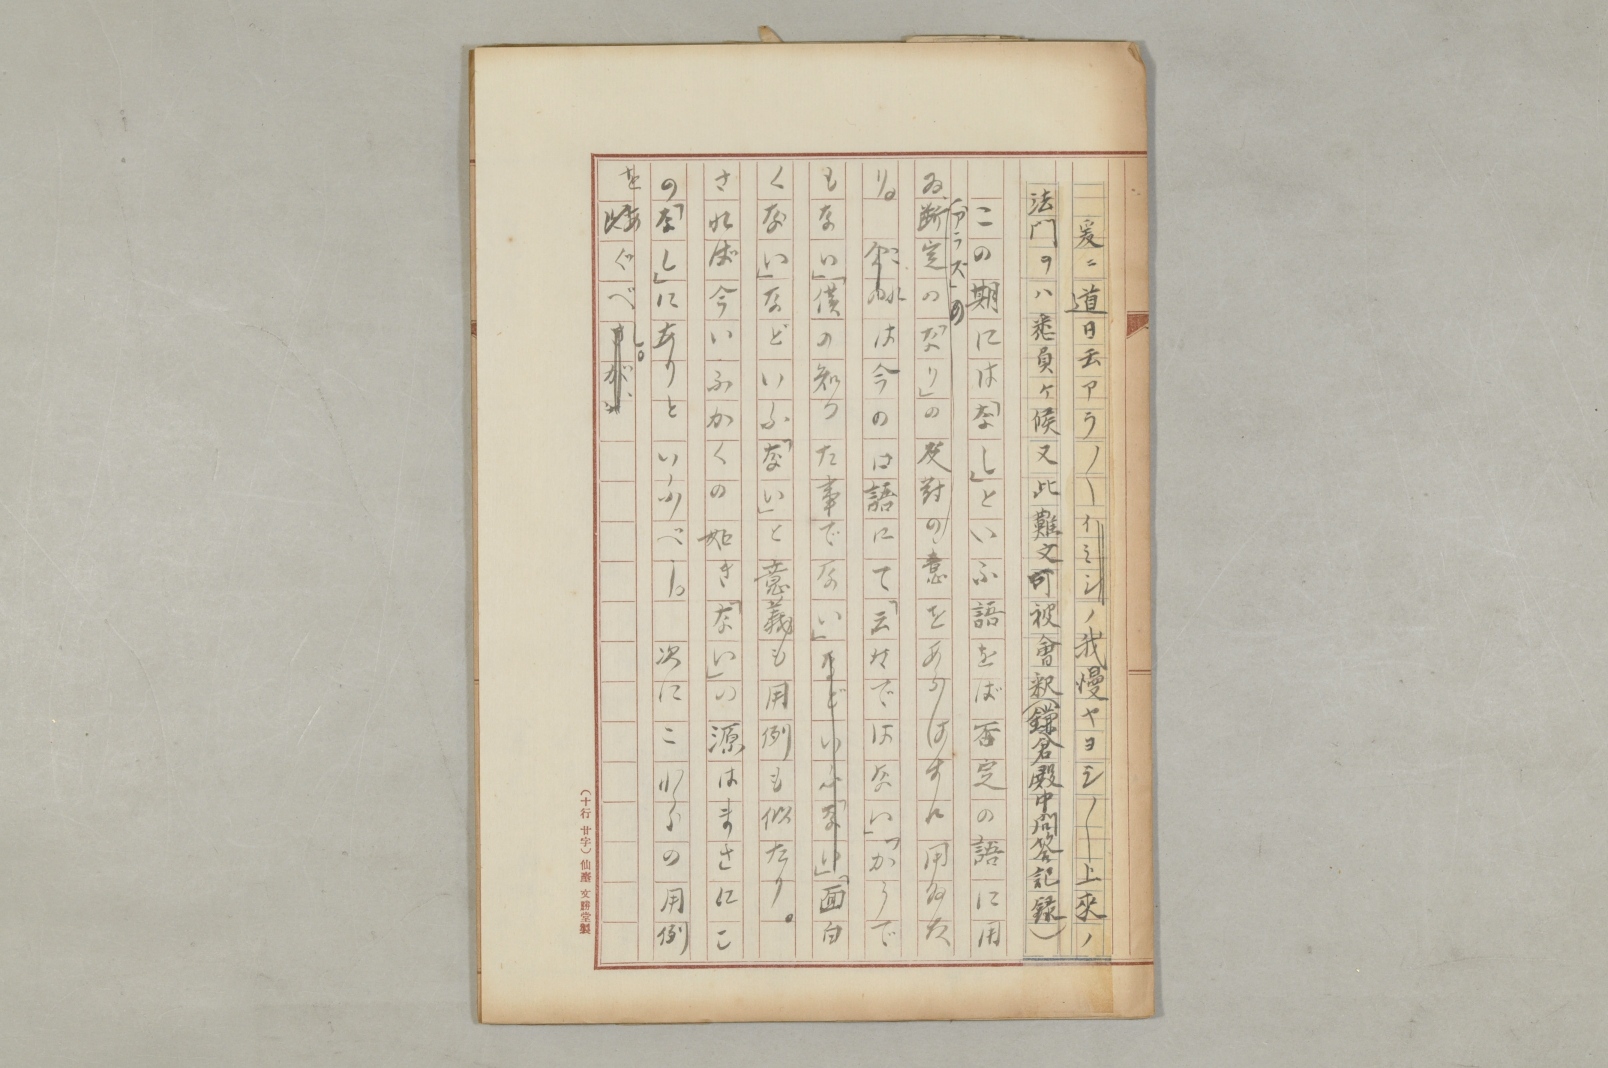 爰ニ道日云アラ〳〵イミシノ我慢ヤヨシ〳〵上來ノ
法門ヲハ悉負ケ候又此難文可被會釈(鎌倉殿中問答記録)
この期には「なし」といふ語をば否定の語に用
ゐ、断定の「なり」の反對の「アラズ」の意をあらはすに用ゐた
り。これは今の口語にて「云はではない」「からで
もない」「僕の知つた事でない」「面白
くない」などいふ「ない」と意義も用例も似たり。
されば今いふかくの如き「ない」の源はまさにこ
の「なし」にありといふべし。次にこれらの用例
をあぐべし。
(十行 廿字) 仙臺 文勝堂製